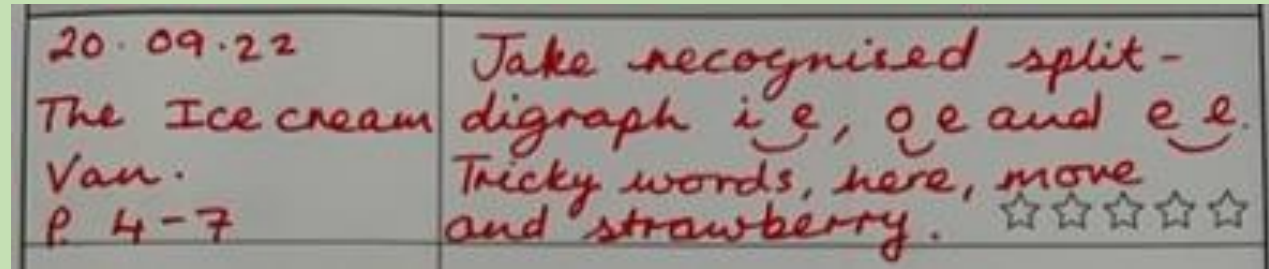 20.09.22
The Ice cream
Van.
P. 4-7
Jake recognised split-
digraph i e, o e and e e.
Tricky words, here, move
and strawberry.